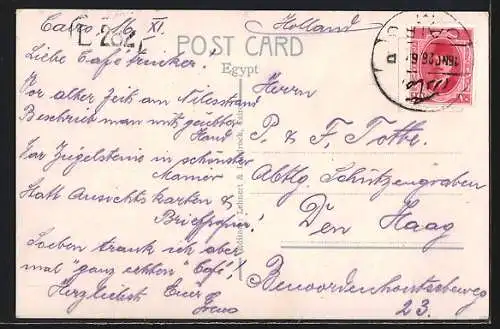 Cairo, 16. XI.
L 282
Holland
POST CARD
Egypt
CAIRO
16 NO 26 6
D
Liebe Cafétrinker!
Vor alter Zeit am Nilesstrand
Beschrieb man mit geübter
Hand
Vor Ziegelsteine in schönster
Manier
Statt Ansichtskarten &
Briefpapier!
Soeben trank ich aber
mal "ganz echten" Café!
Herzlichst Euer
Herrn
P. & F. Totte.
Abtlg. Schützengraben
Den Haag
Benoordenhoutscheweg
23.
Lehnert & Landrock,